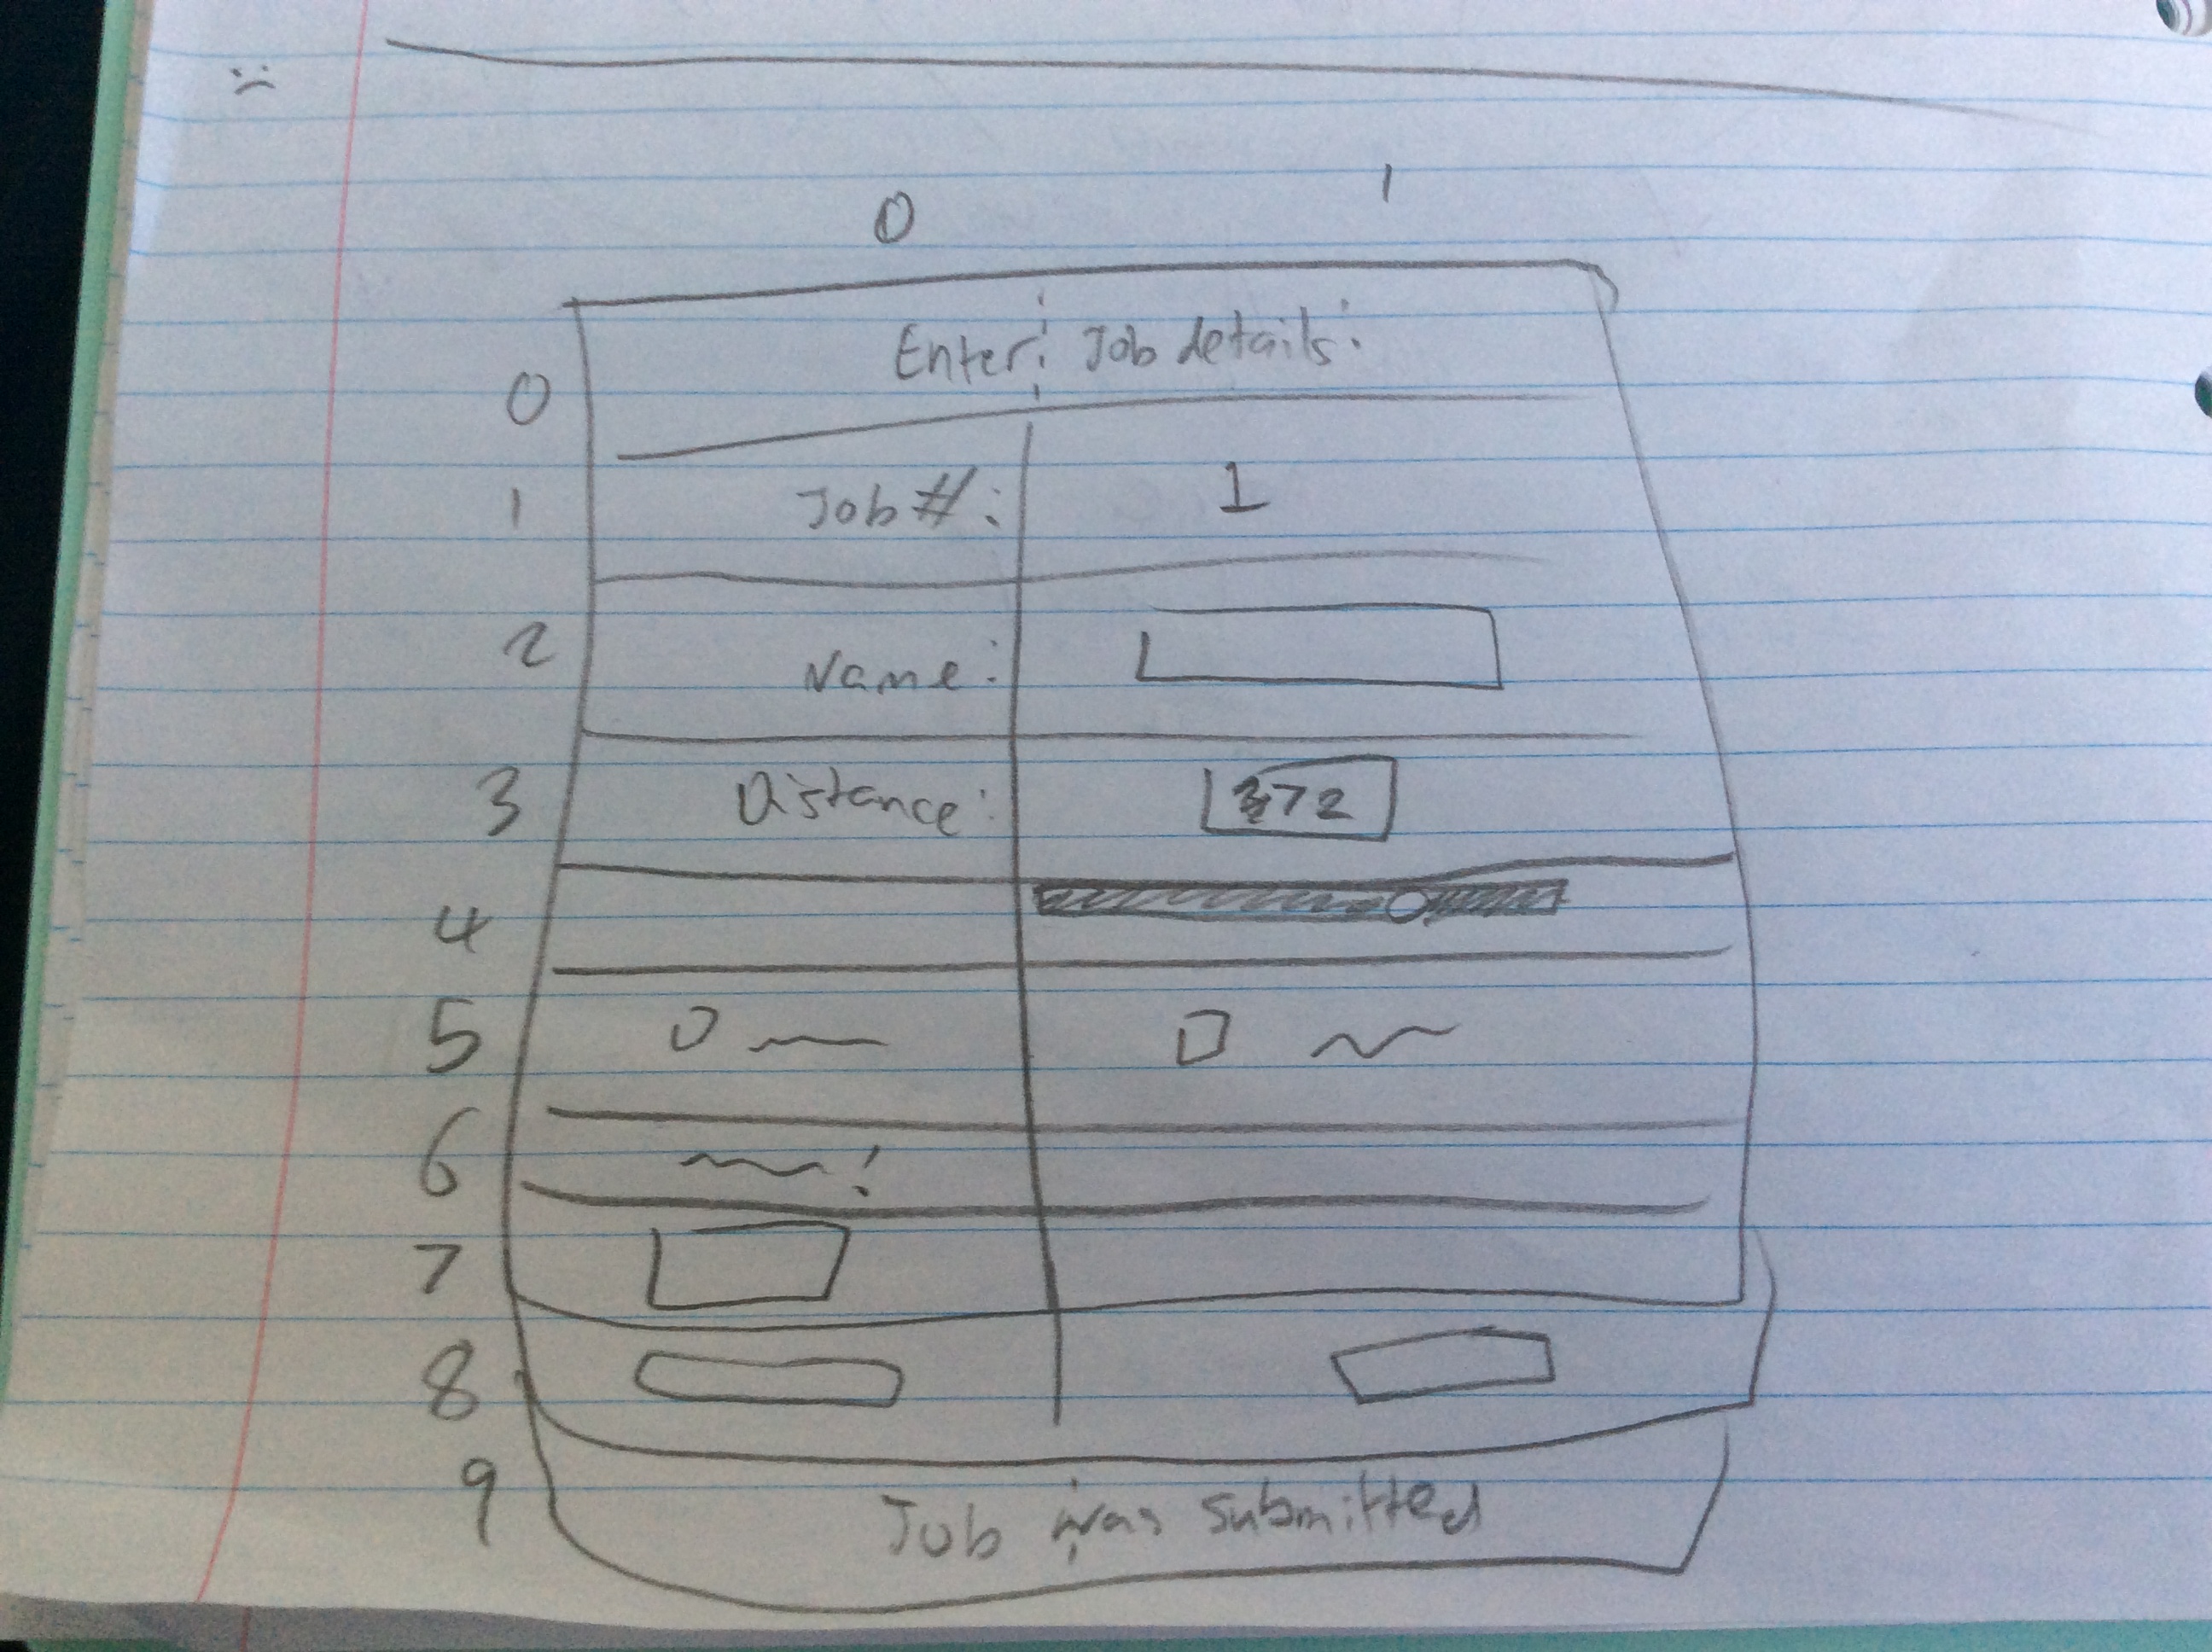 0 1
Enter Job details:
0
1 Job #: 1
2 Name:
3 Distance: 372
4
5
6
7
8
9 Job was submitted